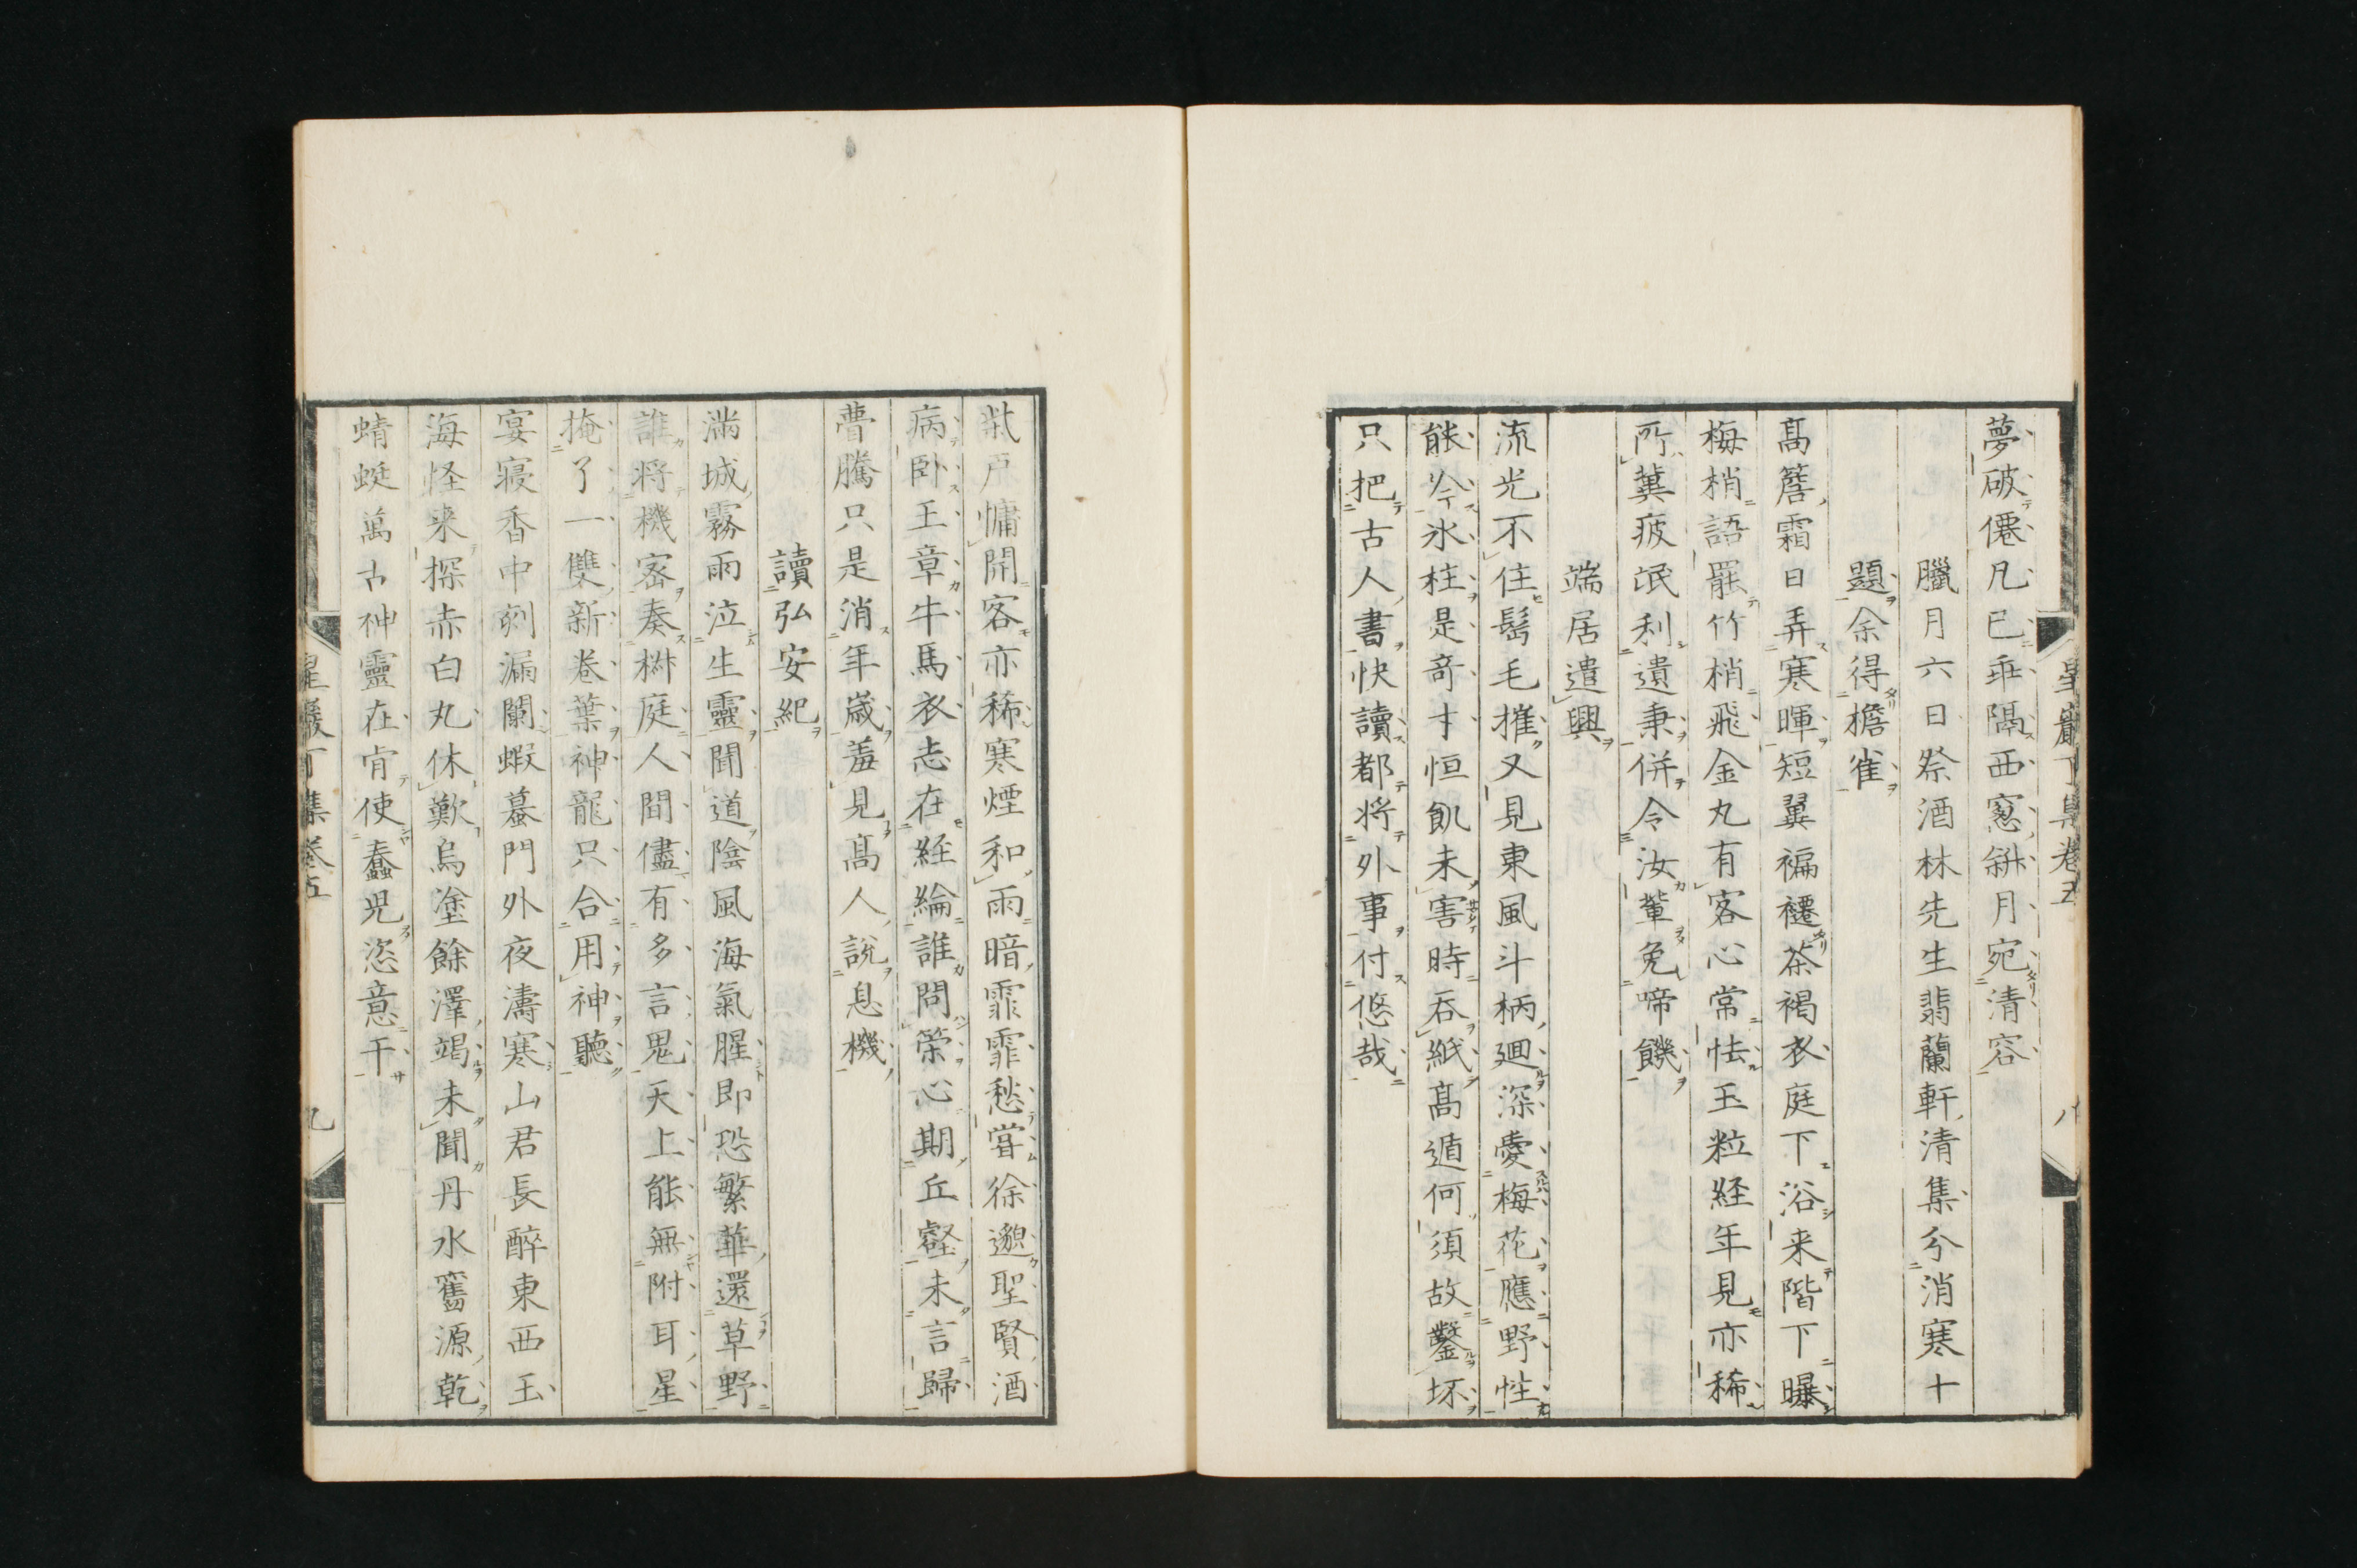 星巖丁集卷五
八
夢破僊凡已乖隔西窻斜月宛清容
臘月六日祭酒林先生翡蘭軒清集分消寒十
題余得檐雀
髙簷霜日弄寒暉短翼褊褼茶褐衣庭下浴来階下曝
梅梢語罷竹梢飛金丸有客心常怯玉粒経年見亦稀
所冀疲氓利遺秉併令汝輩免啼饑
端居遣興
流光不住髩毛摧又見東風斗柄廻深愛梅花應野性
能令氷柱是奇才恒飢未害時吞紙髙遁何須故鑿坏
只把古人書快讀都将外事付悠哉
柴戸慵開客亦稀寒煙和雨暗霏霏愁嘗徐邈聖賢酒
病卧王章牛馬衣志在経綸誰問策心期丘壑未言歸
瞢騰只是消年嵗羞見髙人說息機
讀弘安紀
滿城霧雨泣生靈聞道陰風海氣腥即恐繁華還草野
誰将機密奏椒庭人間儘有多言鬼天上能無附耳星
掩了一雙新卷葉神龍只合用神聽
宴寢香中刻漏闌蝦蟇門外夜濤寒山君長醉東西玉
海怪来探赤白丸休歎烏塗餘澤竭未聞丹水舊源乾
蜻蜓萬古神靈在肯使蠢児恣意干
星巖丁集卷五
九